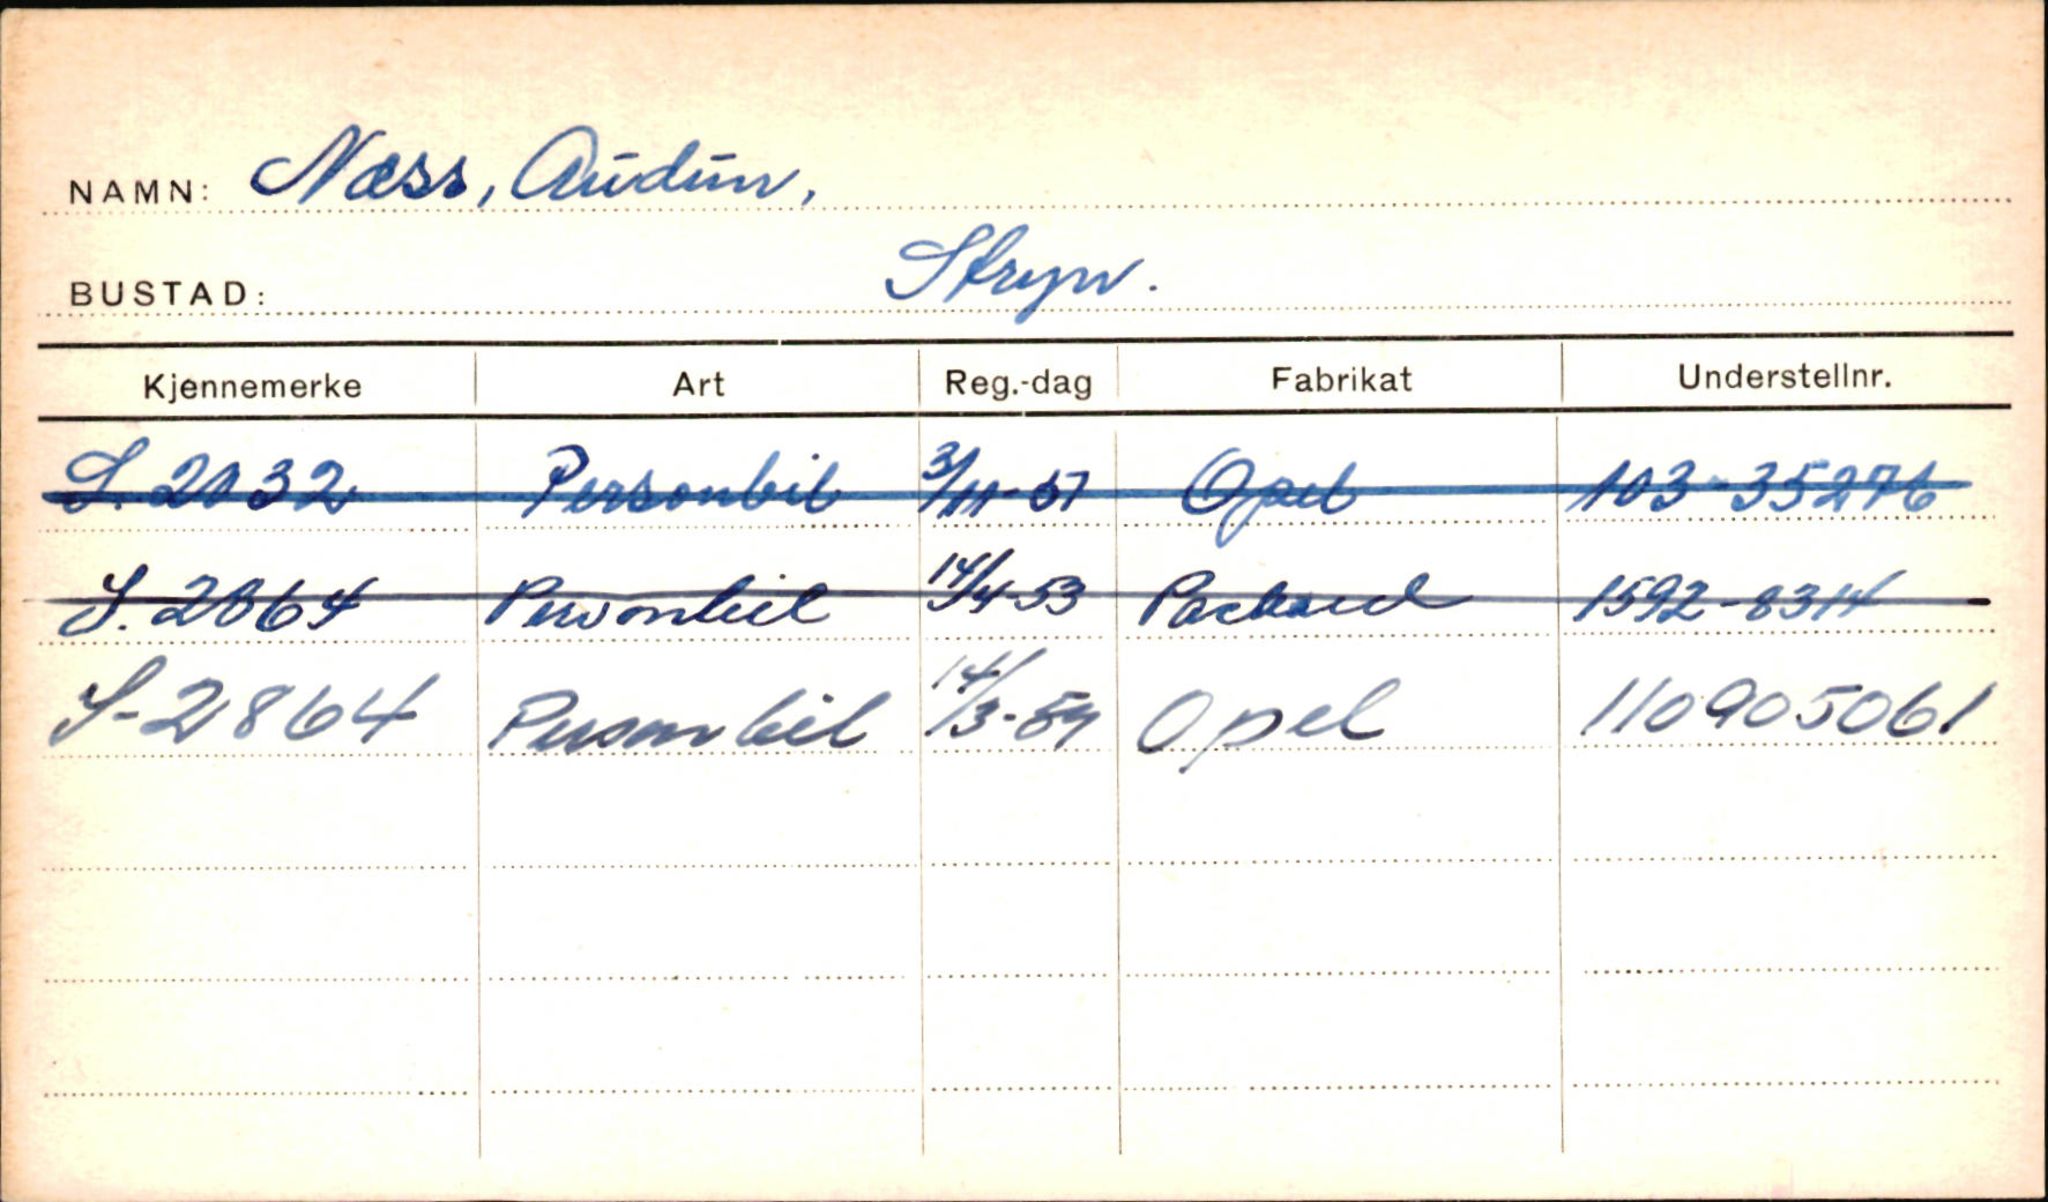 NAMN: Næss, Audun,
BUSTAD: Stryn.
Kjennemerke Art Reg.-dag Fabrikat Understellnr.
S. 2032 Personbil 3/11-51 Opel 103-35276
S. 2864 Personbil 14/4-53 Packard 1592-8314
S-2864 Personbil 14/3-59 Opel 110905061